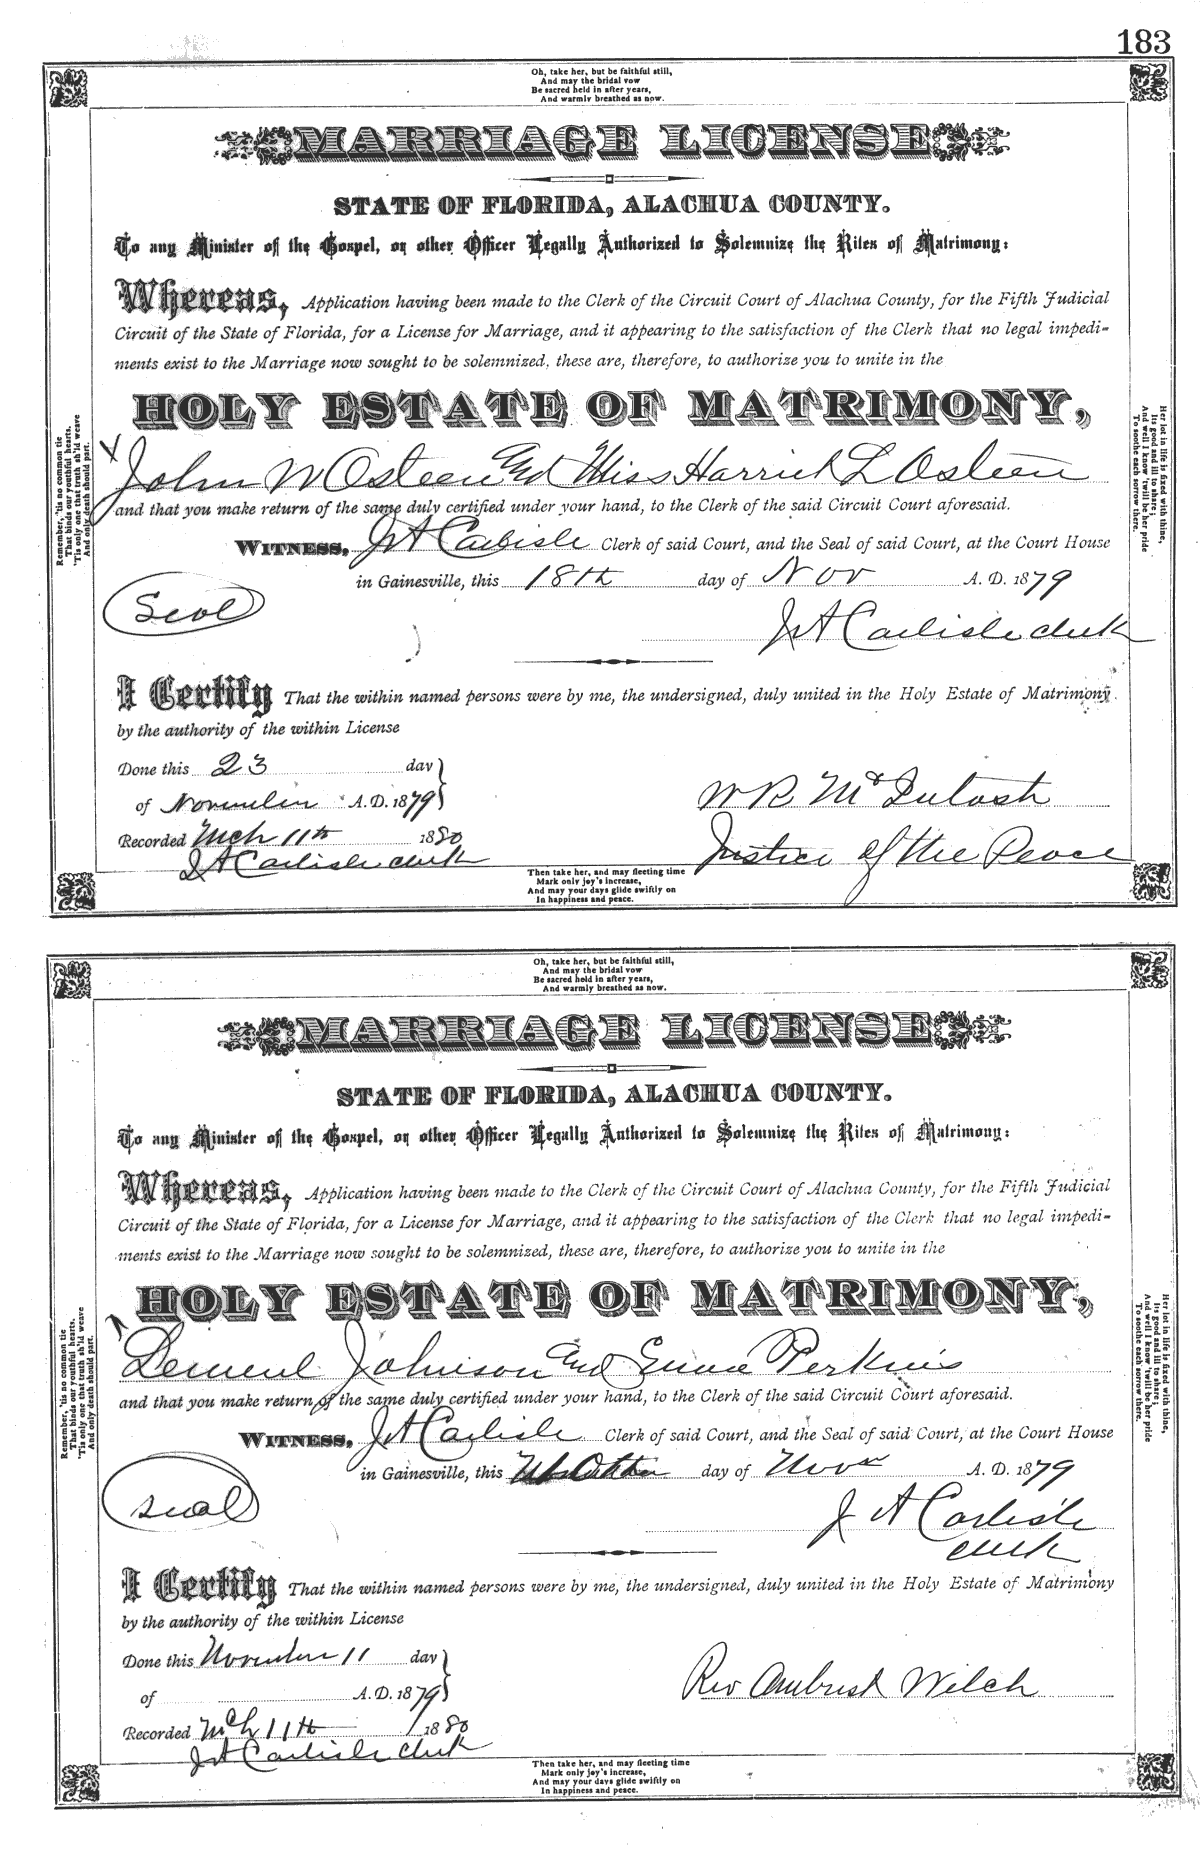 183
Oh, take her, but be faithful still,
And may the bridal vow
Be sacred held in after years,
And warmly breathed as now.
MARRIAGE LICENSE
STATE OF FLORIDA, ALACHUA COUNTY.
To any Minister of the Gospel, or other Officer Legally Authorized to Solemnize the Rites of Matrimony:
Whereas, Application having been made to the Clerk of the Circuit Court of Alachua County, for the Fifth Judicial
Circuit of the State of Florida, for a License for Marriage, and it appearing to the satisfaction of the Clerk that no legal impedi-
ments exist to the Marriage now sought to be solemnized, these are, therefore, to authorize you to unite in the
HOLY ESTATE OF MATRIMONY,
X John W Osteen and Miss Harriet L Osteen
and that you make return of the same duly certified under your hand, to the Clerk of the said Circuit Court aforesaid.
WITNESS, J A Carlisle Clerk of said Court, and the Seal of said Court, at the Court House
in Gainesville, this 18th day of Nov A. D. 1879
Seal
J A Carlisle clerk
I Certify That the within named persons were by me, the undersigned, duly united in the Holy Estate of Matrimony
by the authority of the within License
Done this 23 day
of November A. D. 1879
W R McIntosh
Recorded Mch 11th 1880
Justice of the Peace
J A Carlisle clerk
Then take her, and may fleeting time
Mark only joy's increase,
And may your days glide swiftly on
In happiness and peace.
Remember, 'tis no common tie
That binds our youthful hearts,
'Tis only one that truth sh'ld weave
And only death should part.
Her lot in life is fixed with thine,
Its good and ill to share;
And well I know 'twill be her pride
To soothe each sorrow there.
Oh, take her, but be faithful still,
And may the bridal vow
Be sacred held in after years,
And warmly breathed as now.
MARRIAGE LICENSE
STATE OF FLORIDA, ALACHUA COUNTY.
To any Minister of the Gospel, or other Officer Legally Authorized to Solemnize the Rites of Matrimony:
Whereas, Application having been made to the Clerk of the Circuit Court of Alachua County, for the Fifth Judicial
Circuit of the State of Florida, for a License for Marriage, and it appearing to the satisfaction of the Clerk that no legal impedi-
ments exist to the Marriage now sought to be solemnized, these are, therefore, to authorize you to unite in the
HOLY ESTATE OF MATRIMONY,
Lemuel Johnson and Perkins
and that you make return of the same duly certified under your hand, to the Clerk of the said Circuit Court aforesaid.
WITNESS, J A Carlisle Clerk of said Court, and the Seal of said Court, at the Court House
in Gainesville, this day of A. D. 1879
seal
J A Carlisle
clerk
I Certify That the within named persons were by me, the undersigned, duly united in the Holy Estate of Matrimony
by the authority of the within License
Done this November 11 day
of A. D. 1879
Rev Ambrish Welch
Recorded Mch 11th 1880
J A Carlisle clerk
Then take her, and may fleeting time
Mark only joy's increase,
And may your days glide swiftly on
In happiness and peace.
Remember, 'tis no common tie
That binds our youthful hearts,
'Tis only one that truth sh'ld weave
And only death should part.
Her lot in life is fixed with thine,
Its good and ill to share;
And well I know 'twill be her pride
To soothe each sorrow there.